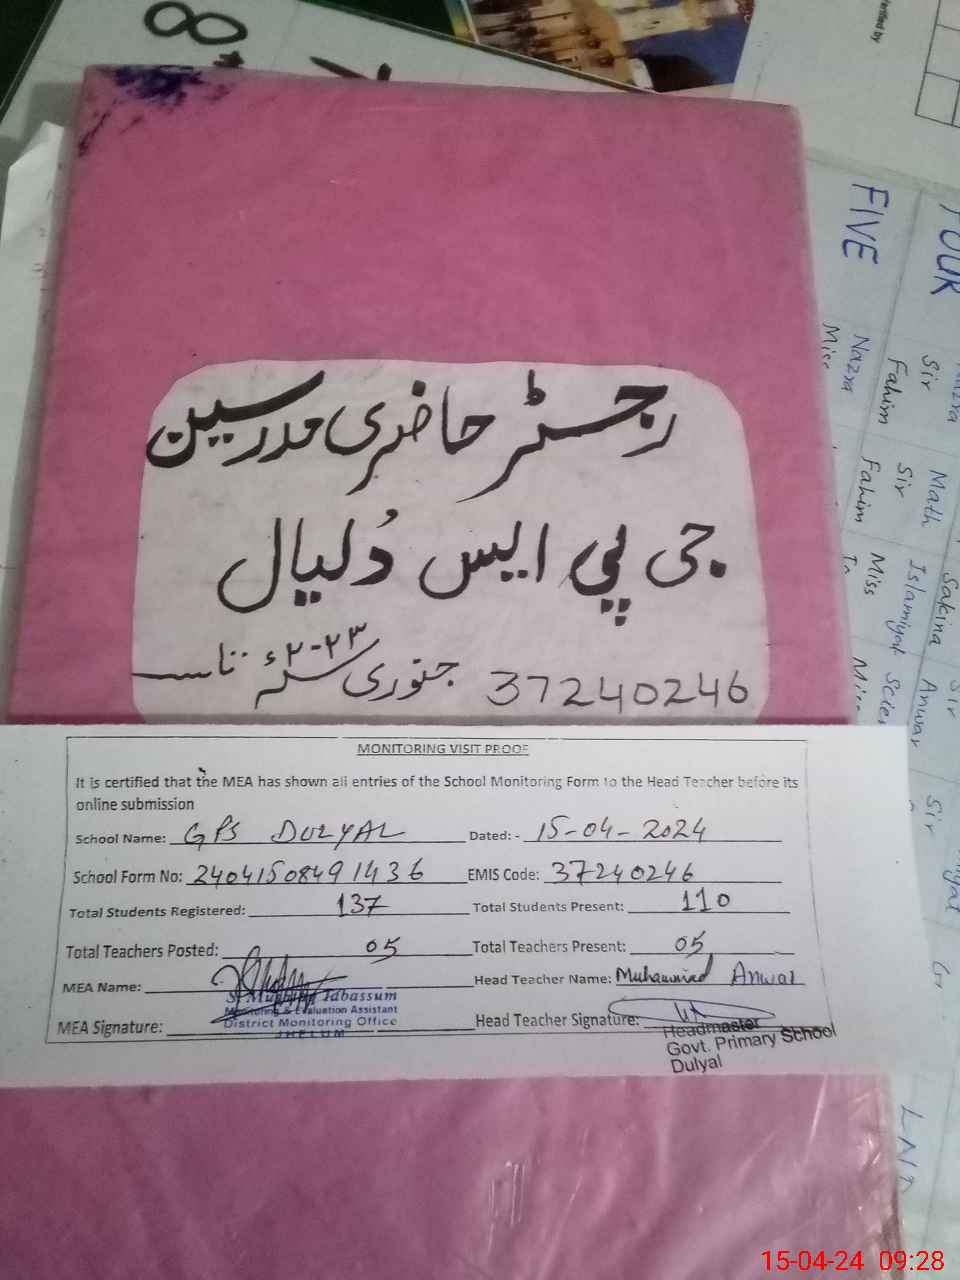 8
Verified by
FOUR
FIVE
Nazra
Sir
Fahim
Math
Sir
Fahim
Sakina
Islamiyat
Miss
Anwar
Sir
Nazra
Miss
رجسٹر حاضری مدرسین
جی پی ایس دُلیال
37240246 جنوری سنہ ۲۰۲۳ء تا
MONITORING VISIT PROOF
It is certified that the MEA has shown all entries of the School Monitoring Form to the Head Teacher before its
online submission
School Name: GPS DULYAL Dated: - 15-04-2024
School Form No: 24041508491436 EMIS Code: 37240246
Total Students Registered: 137 Total Students Present: 110
Total Teachers Posted: 05 Total Teachers Present: 05
MEA Name: Head Teacher Name: Muhammad Anwar
Tabassum
Monitoring & Evaluation Assistant
District Monitoring Office
JHELUM
MEA Signature: Head Teacher Signature:
Headmaster
Govt. Primary School
Dulyal
15-04-24 09:28